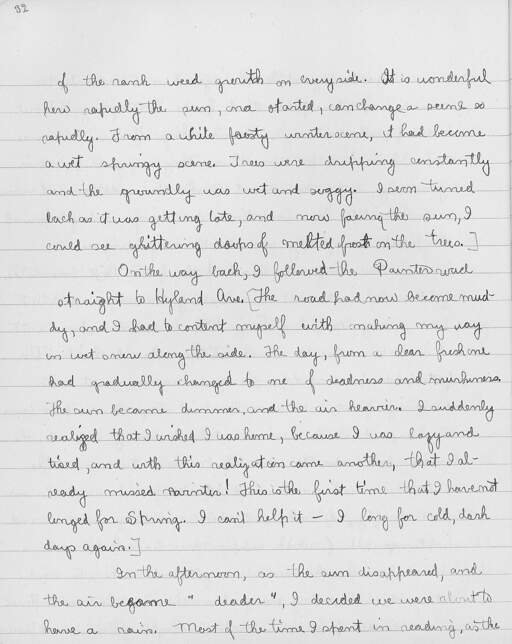 32
of the rank weed growth on every side. It is wonderful
how rapidly the sun, once started, can change a scene so
rapidly. From a white frosty winter scene, it had become
a wet springy scene. Trees were dripping constantly
and the groundly was wet and soggy. I soon turned
back as it was getting late, and now facing the sun, I
could see glittering drops of melted frost on the trees.]
On the way back, I followed the Painter road
straight to Hyland Ave. [The road had now become mud-
dy, and I had to content myself with making my way
in wet snow along the side. The day, from a clear fresh one
had gradually changed to one of deadness and murkiness.
The sun became dimmer, and the air heavier. I suddenly
realized that I wished I was home, because I was lazy and
tired, and with this realization came another, that I al-
ready missed winter! This is the first time that I have not
longed for Spring. I can't help it — I long for cold, dark
days again.]
In the afternoon, as the sun disappeared, and
the air became "deader", I decided we were about to
have a rain. Most of the time I spent in reading, as the